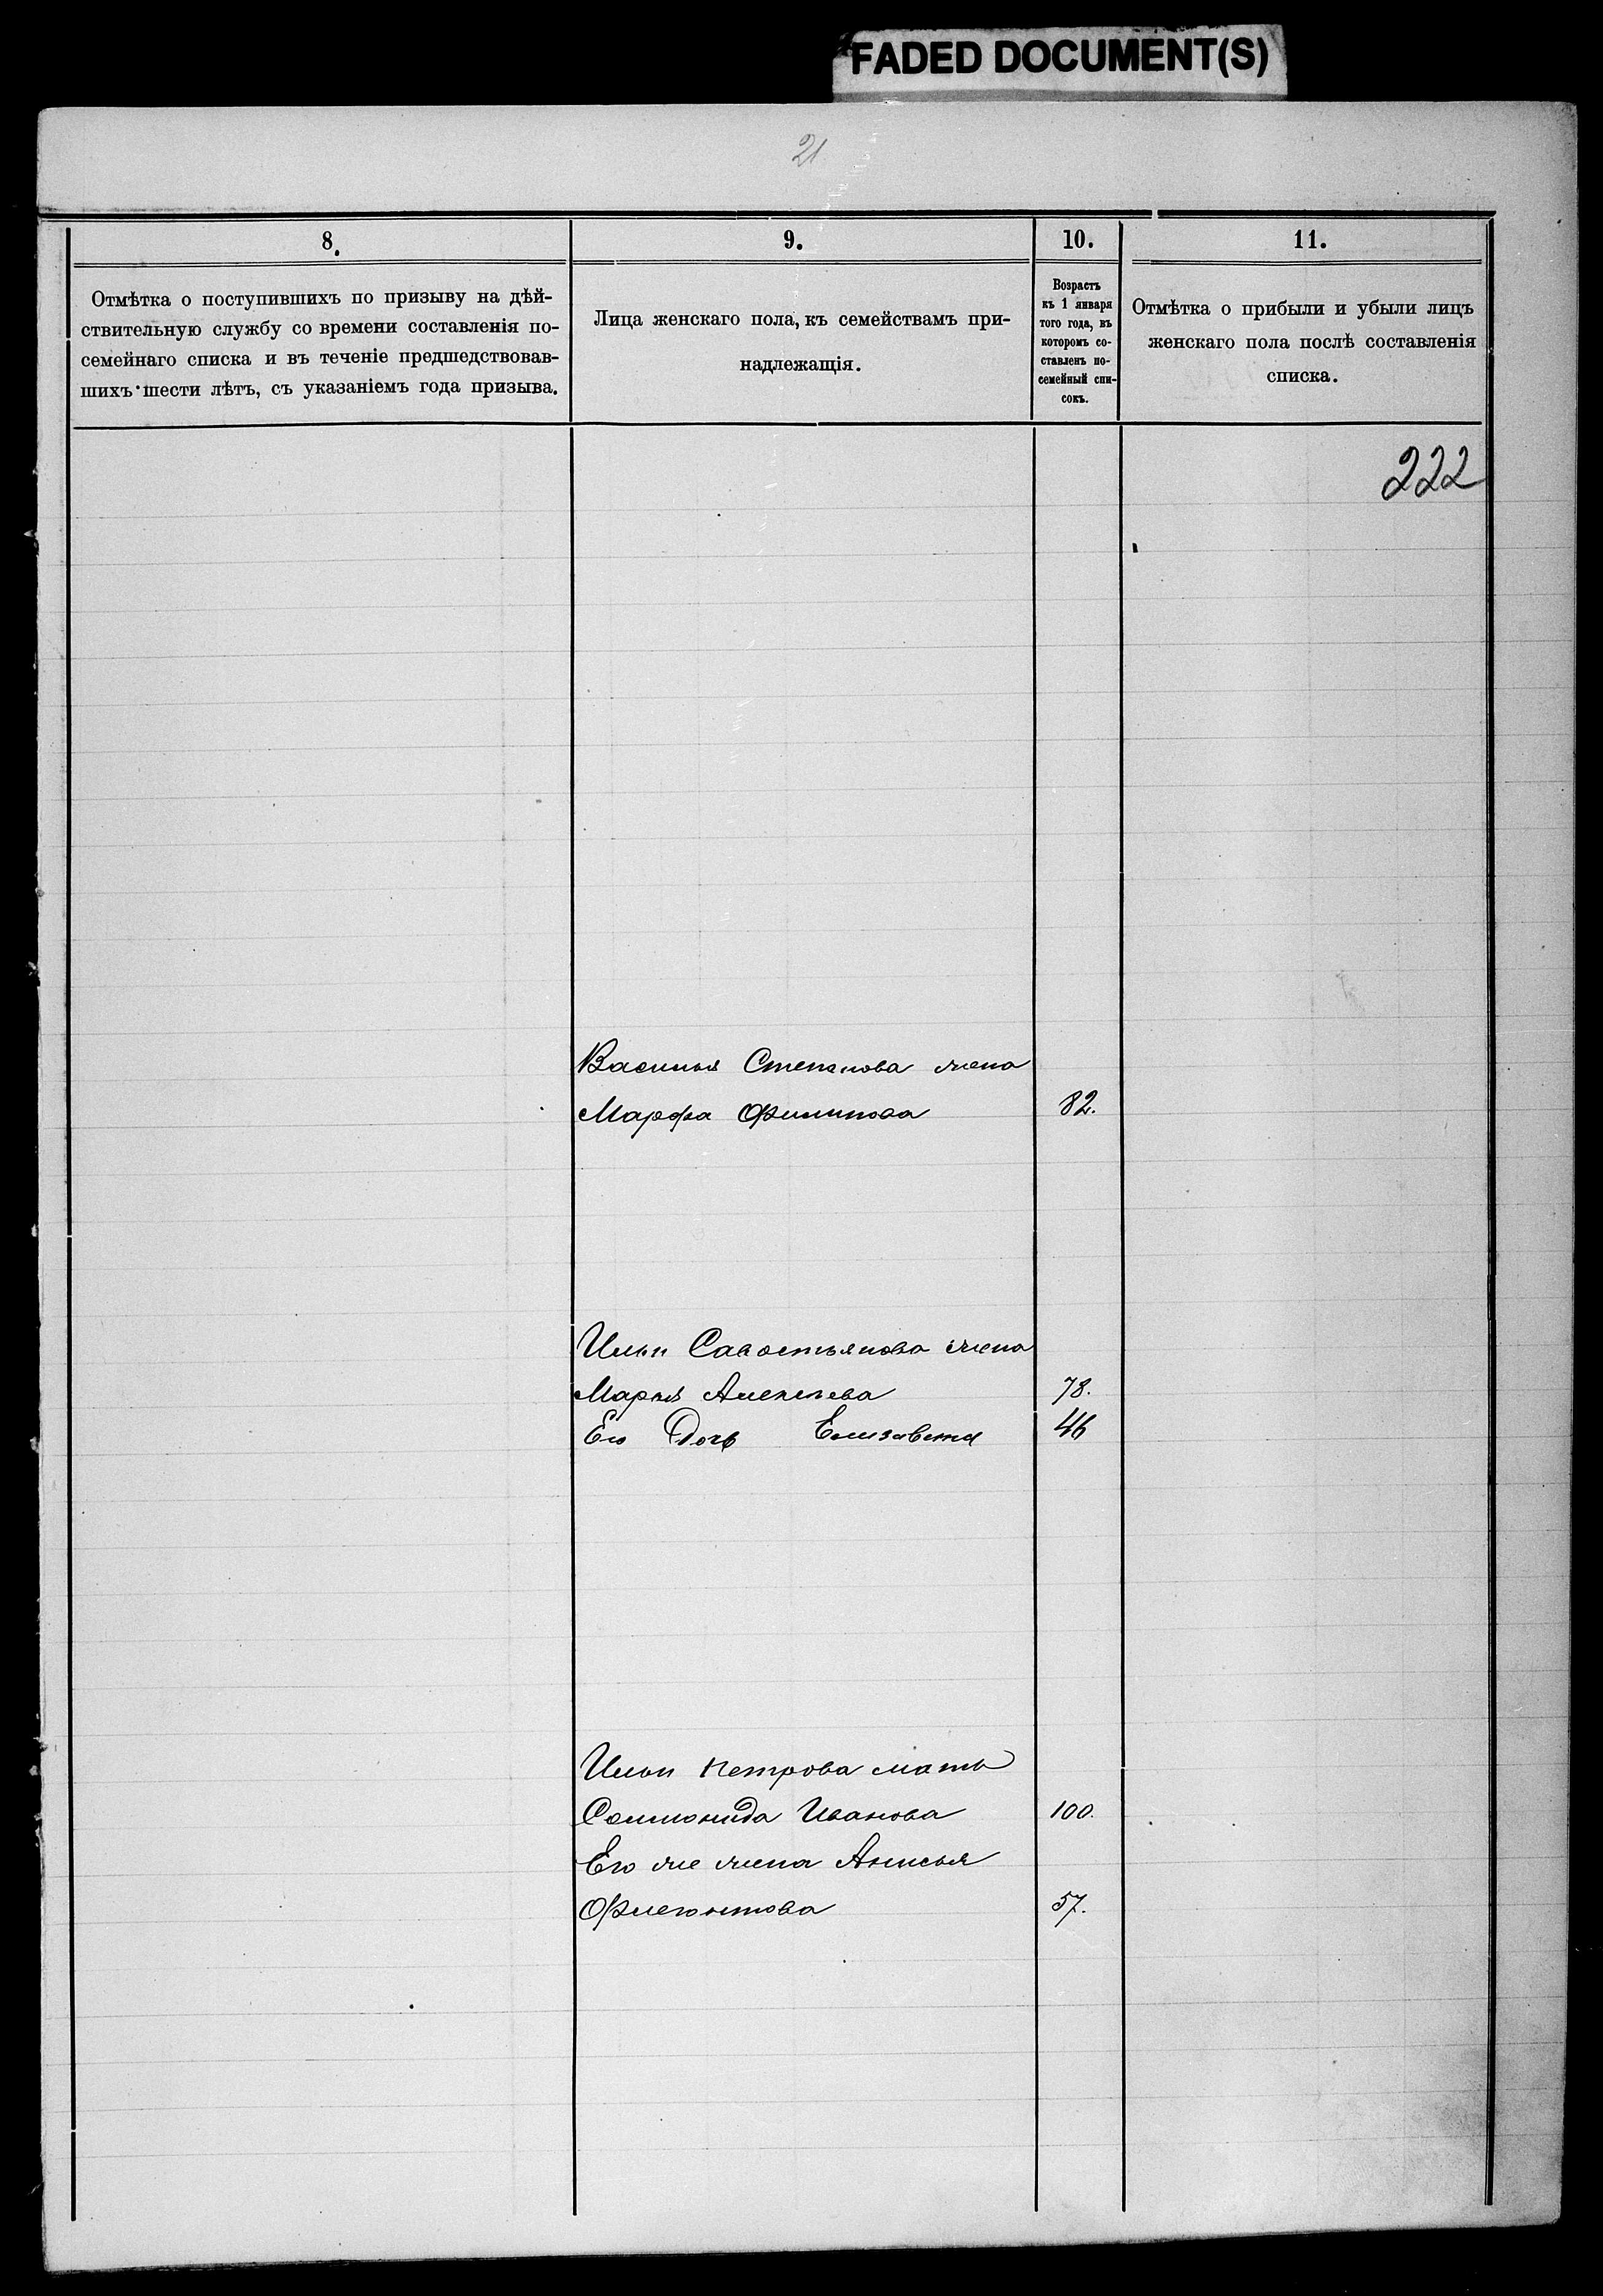 FADED DOCUMENT(S)
21
8.
9.
10.
11.
Отмѣтка о поступившихъ по призыву на дѣй-
ствительную службу со времени составленія по-
семейнаго списка и въ теченіе предшедствовав-
шихъ шести лѣтъ, съ указаніемъ года призыва.
Лица женскаго пола, къ семействамъ при-
надлежащія.
Возрастъ
къ 1 января
того года, въ
которомъ со-
ставленъ по-
семейный спи-
сокъ.
Отмѣтка о прибыли и убыли лицъ
женскаго пола послѣ составленія
списка.
222
Василья Степанова жена
Марфа Филипова 82.
Ильи Савостьянова жена
Марья Алексѣева 78.
Его Дочь Елизавета 46
Ильи Петрова мать
Соломонида Иванова 100.
Его же жена Анисья
Флегонтова 57.